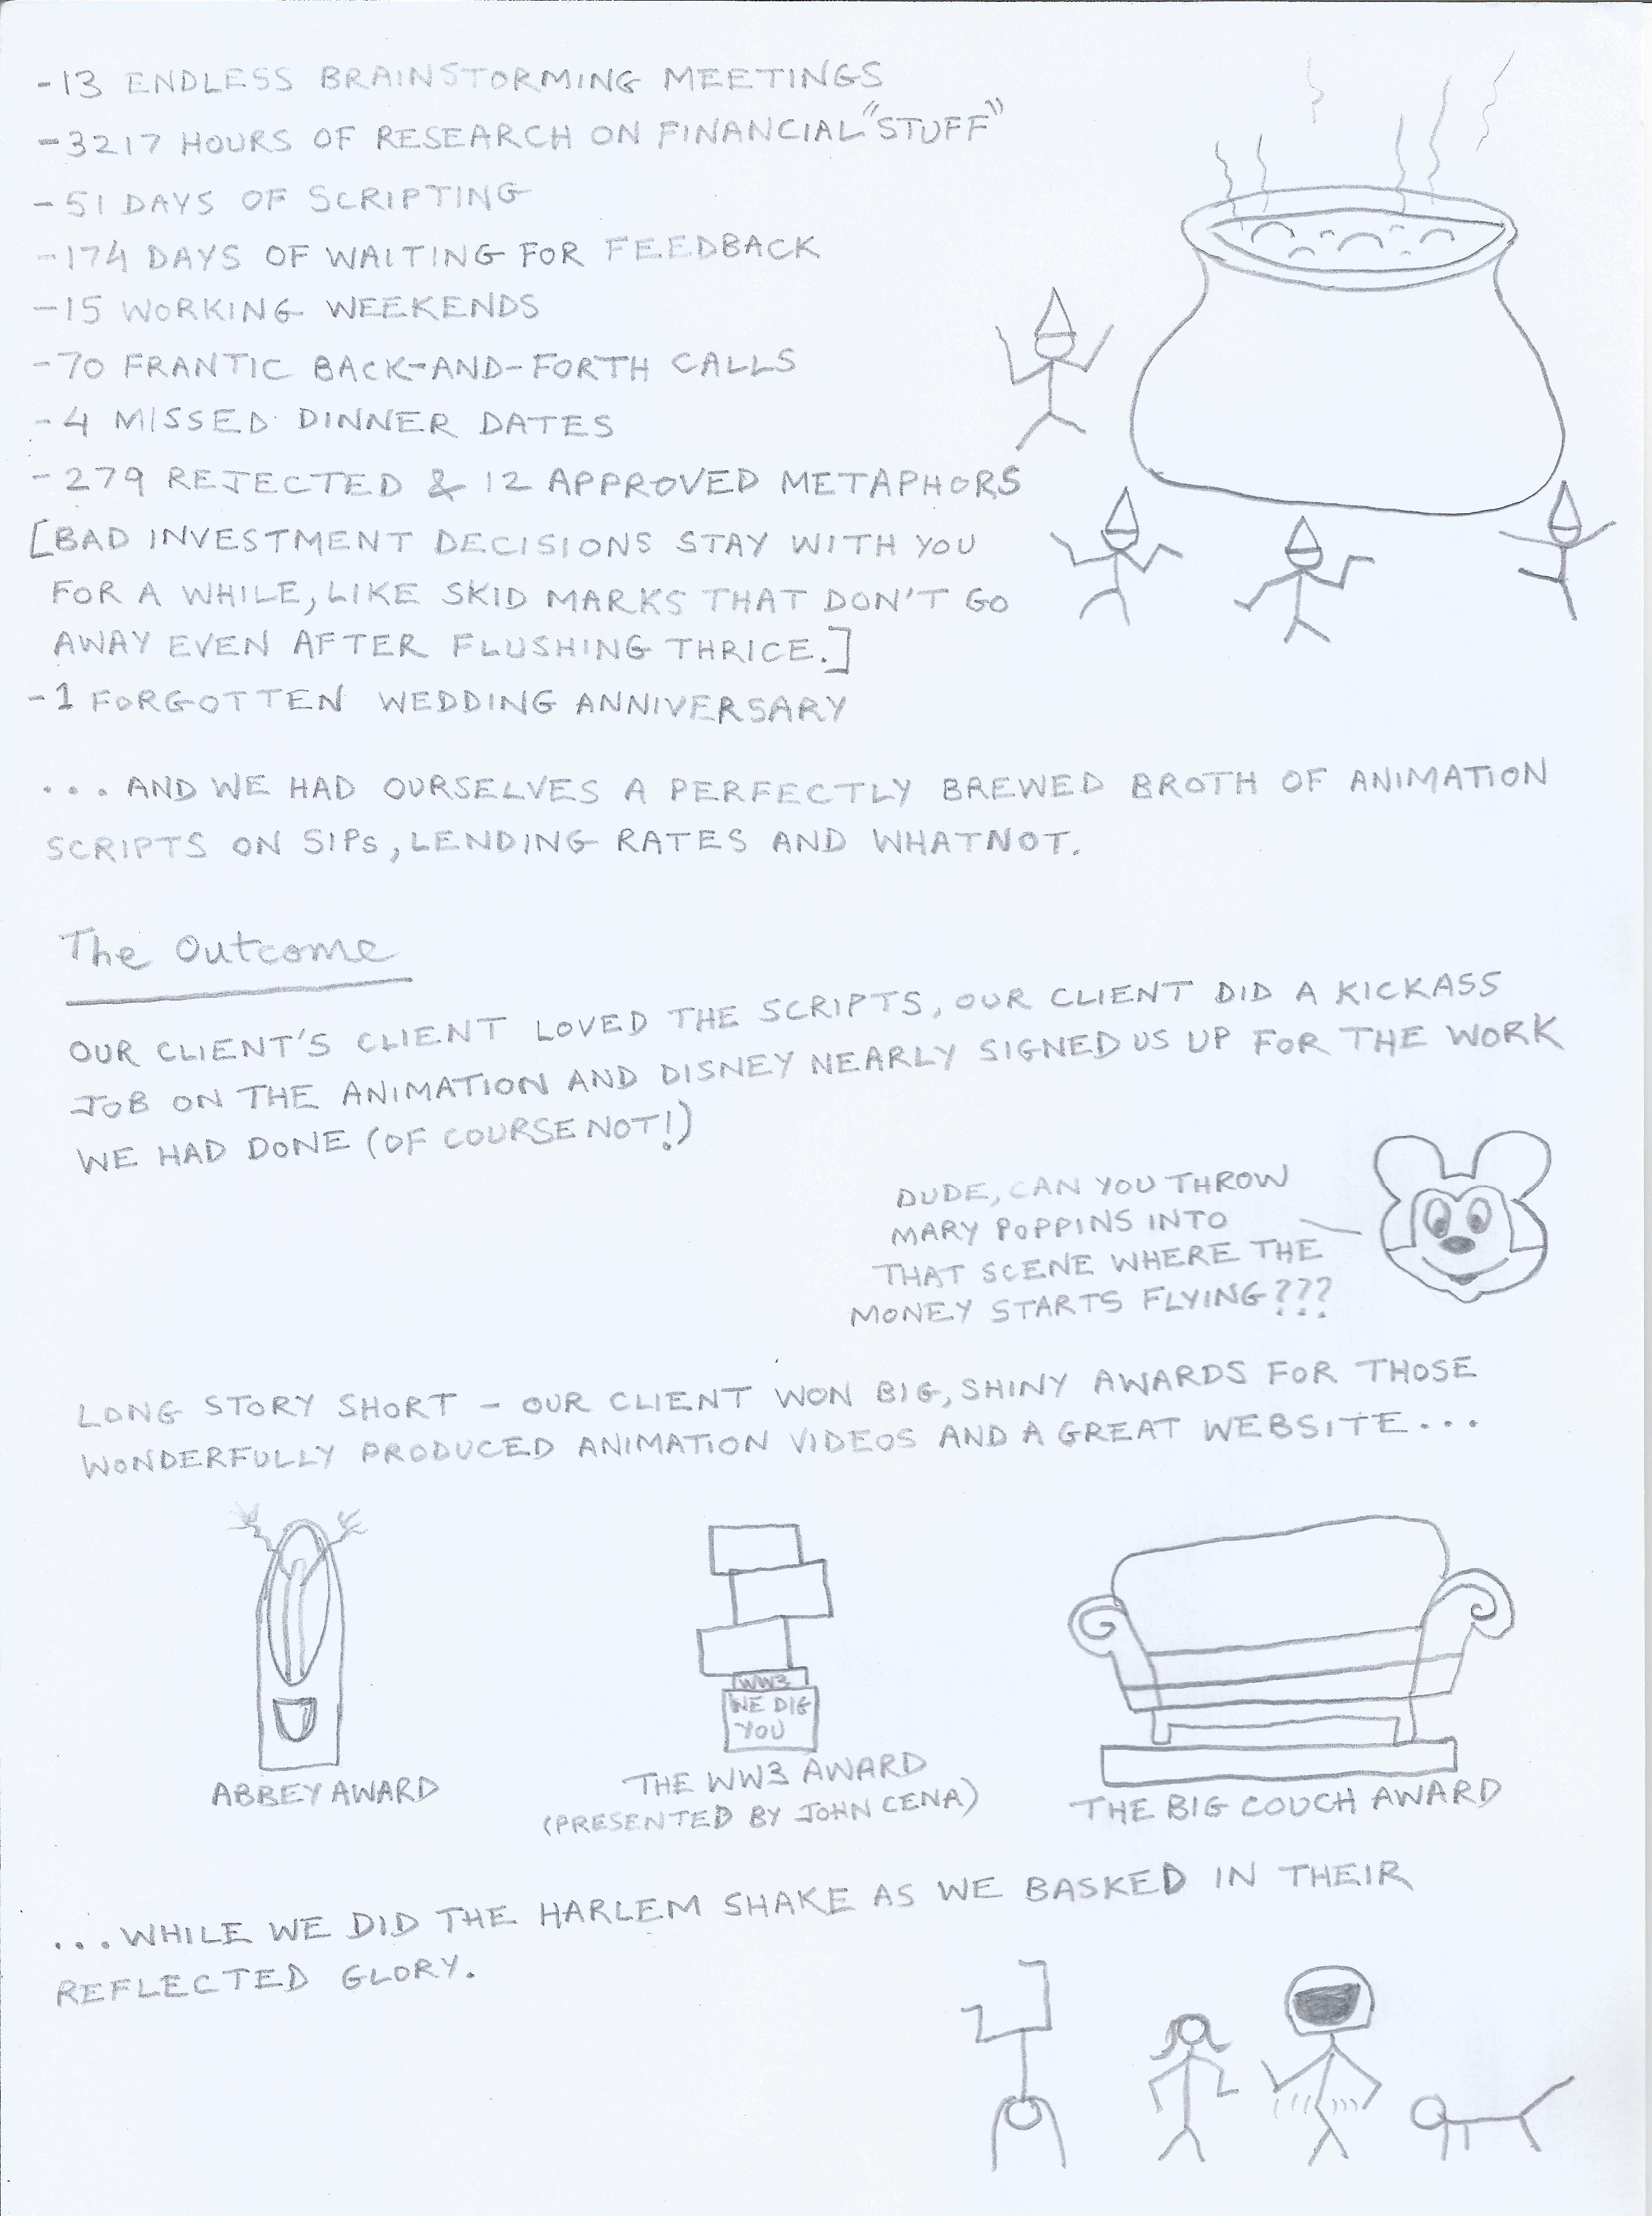 -13 ENDLESS BRAINSTORMING MEETINGS
-3217 HOURS OF RESEARCH ON FINANCIAL "STUFF"
-51 DAYS OF SCRIPTING
-174 DAYS OF WAITING FOR FEEDBACK
-15 WORKING WEEKENDS
-70 FRANTIC BACK-AND-FORTH CALLS
-4 MISSED DINNER DATES
-279 REJECTED & 12 APPROVED METAPHORS
[BAD INVESTMENT DECISIONS STAY WITH YOU
FOR A WHILE, LIKE SKID MARKS THAT DON'T GO
AWAY EVEN AFTER FLUSHING THRICE.]
-1 FORGOTTEN WEDDING ANNIVERSARY
...AND WE HAD OURSELVES A PERFECTLY BREWED BROTH OF ANIMATION
SCRIPTS ON SIPs, LENDING RATES AND WHATNOT.
The Outcome
OUR CLIENT'S CLIENT LOVED THE SCRIPTS, OUR CLIENT DID A KICKASS
JOB ON THE ANIMATION AND DISNEY NEARLY SIGNED US UP FOR THE WORK
WE HAD DONE (OF COURSE NOT!)
DUDE, CAN YOU THROW
MARY POPPINS INTO
THAT SCENE WHERE THE
MONEY STARTS FLYING???
LONG STORY SHORT - OUR CLIENT WON BIG, SHINY AWARDS FOR THOSE
WONDERFULLY PRODUCED ANIMATION VIDEOS AND A GREAT WEBSITE...
WW3
WE DIG
YOU
ABBEY AWARD
THE WW3 AWARD
(PRESENTED BY JOHN CENA)
THE BIG COUCH AWARD
...WHILE WE DID THE HARLEM SHAKE AS WE BASKED IN THEIR
REFLECTED GLORY.